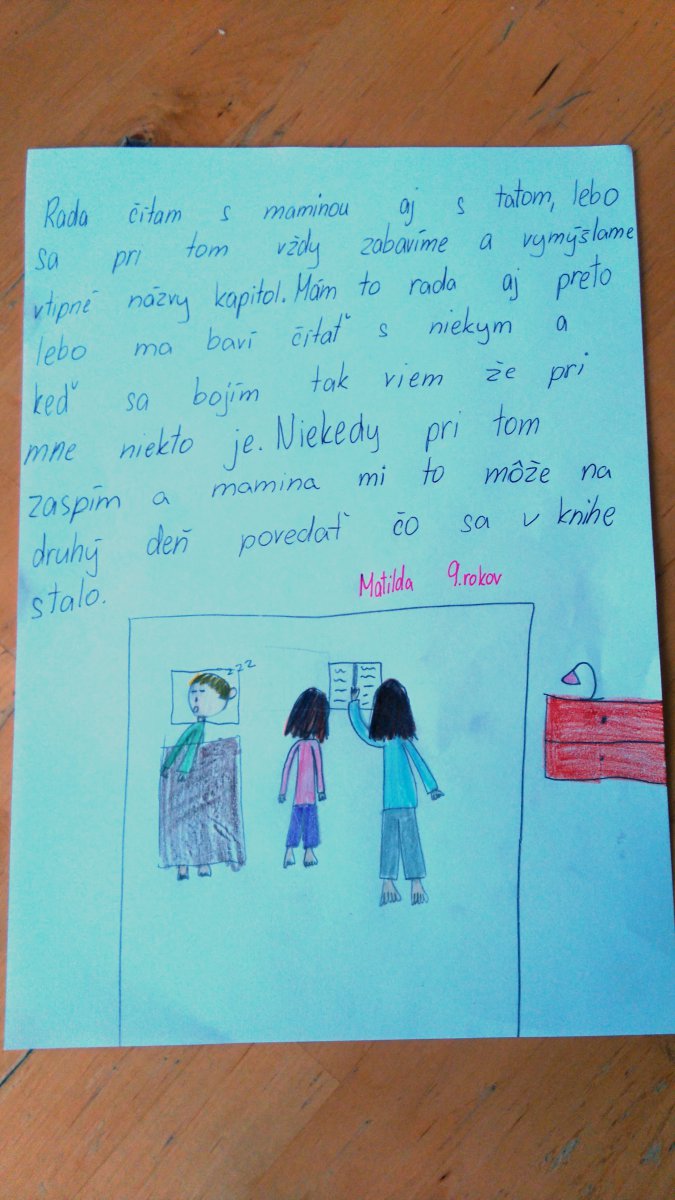 Rada čítam s maminou aj s tatom, lebo
sa pri tom vždy zabavíme a vymýšlame
vtipné názvy kapitol. Mám to rada aj preto
lebo ma baví čítať s niekym a
keď sa bojím tak viem že pri
mne niekto je. Niekedy pri tom
zaspím a mamina mi to môže na
druhý deň povedať čo sa v knihe
stalo.
Matilda 9.rokov
zzz